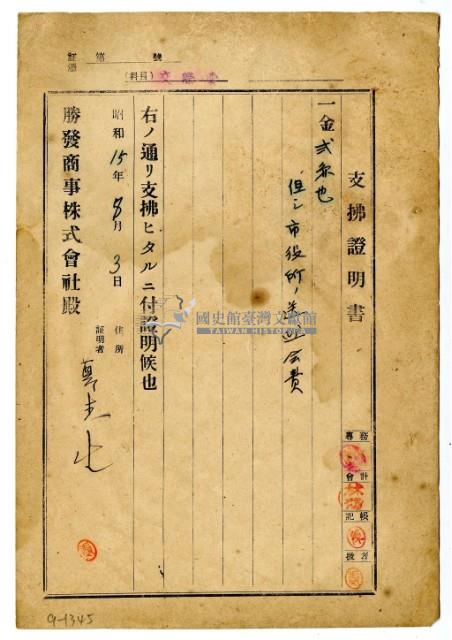 證憑 第 號
(科目) 交際費
支拂證明書
一金弐円也
但シ市役所ノ送迎会費
右ノ通リ支拂ヒタルニ付證明候也
昭和15年8月3日
住所
証明者
勝發商事株式會社殿
專務
會計
記帳
扱者
國史館臺灣文獻館
TAIWAN HISTORICA
9-1345